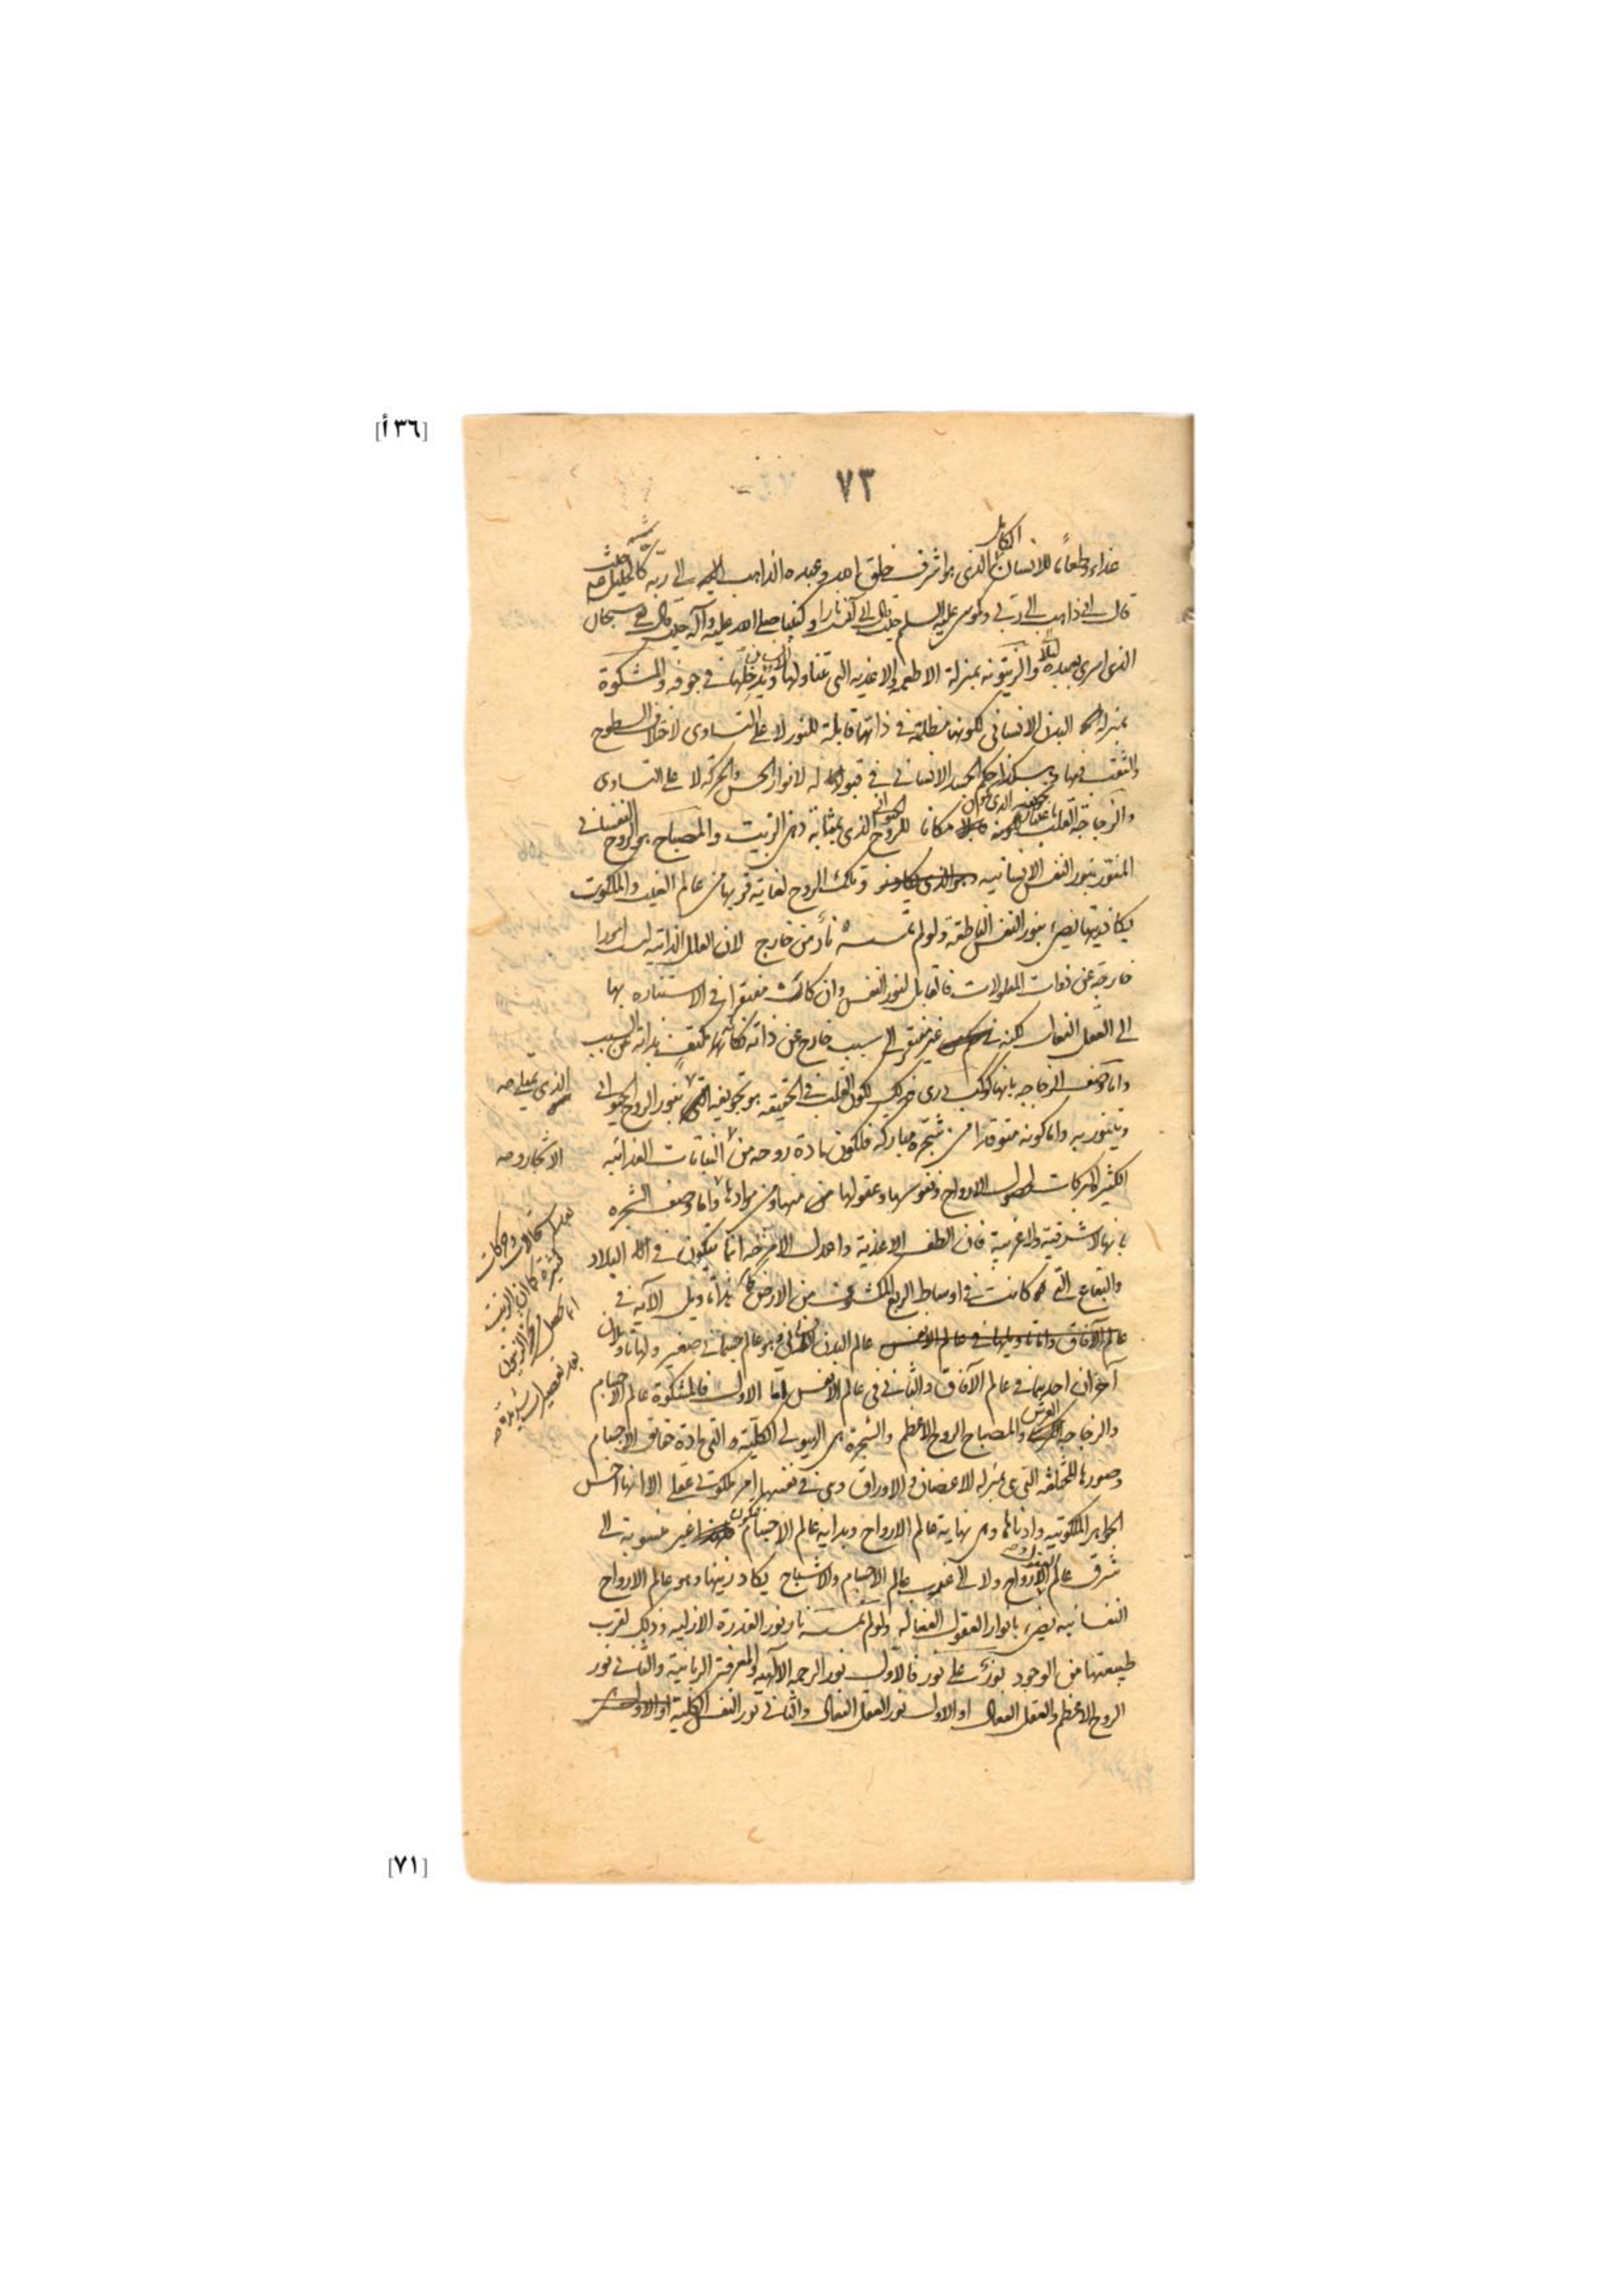 [٣٦ أ]
٧٣
الكامل
غذاء وطعاما للانسان الذى هو اشرف خلق الله وعبده الذاهب الى ربه كالخليل حيث
قال انى ذاهب الى ربى وكموسى عليه السلم حيث قال انى آنست نارا وكنبينا صلى الله عليه وآله حيث قال سبحان
الذى اسرى بعبده ليلا والزيتونة بمنزلة الاطعمة والاغذية التى تتناولها ويدخلها فى جوفه والمشكوة
بمنزلة البدن الانسانى لكونها مظلمة فى ذاتها قابلة للنور لا على التساوى لاختلاف السطوح
والثقب فيها وهكذا حكم الجسد الانسانى فى قبوله لانوار الحس والحركة لا على التساوى
والزجاجة القلب مكانا للروح الحيوانى الذى بمثابة دهن الزيت والمصباح هو الروح النفسانى
المتنور بنور النفس الانسانية وتلك الروح لغاية قربها من عالم الغيب والملكوت
يكاد زيتها يضىء بنور النفس الناطقة ولو لم تمسسه نار من خارج لان العلل الذاتية ليست امورا
خارجة عن ذوات المعلولات فالقابل لنور النفس وان كانت مفتقرا فى الاستنارة بها
الى العقل الفعال لكنه غير مفتقر الى سبب خارج عن ذاته فكأنها مكتف بذاته عن السبب
واما وصف الزجاجة بانها كوكب درى فذلك لكون القلب فى الحقيقة هو تجويفه الذى يمتلى بنور الروح الحيوانى
ويتنور به واما كونه متوقدا من شجرة مباركة فلكون مادة روحه من النباتات الغذائية
الكثير البركات لحصول الارواح ونفوسها وعقولها منها ومن موادها واما وصف الشجرة
بانها لا شرقية ولا غربية فان الطف الاغذية واعدل الامزجة انما يتكون فى البلاد
والبقاع التى كانت فى اوساط الربع المكشوف من الارض هذا تاويل الآية فى
عالم الآفاق واما تاويلها فى عالم الانفس عالم البدن الانسانى وهو عالم جسمانى صغير ولها تاويلان
آخران احدهما فى عالم الآفاق والثانى فى عالم الانفس اما الاول فالمشكوة عالم الاجسام
والزجاجة العرش والمصباح الروح الاعظم والشجرة هى الهيولى الكلية التى مادة حقايق الاجسام
وصورها المختلفة التى هى بمنزلة الاغصان والاوراق وهى فى نفسها امر ملكوتى عقلى الا انها اخس
الجواهر الملكوتية وادناها وهى نهاية عالم الارواح وبداية عالم الاجسام فيكون غير منسوبة الى
شرق عالم الارواح ولا الى غرب عالم الاجسام والاشباح يكاد زيتها وهو عالم الارواح
النفسانية يضىء بانوار العقول الفعالة ولو لم تمسسه نار نور القدرة الازلية وذلك لقرب
طبيعتها من الوجود نور على نور فالاول نور الرحمة الالهية والمعرفة الربانية والثانى نور
الروح الاعظم والعقل الفعال او الاول نور العقل الفعال والثانى نور النفس الكلية او الاول
بعد استحالات وحركات
كثيرة كما ان الزيت
انما يحصل من الزيتون
بعد تعصيرات شديدة
[٧١]